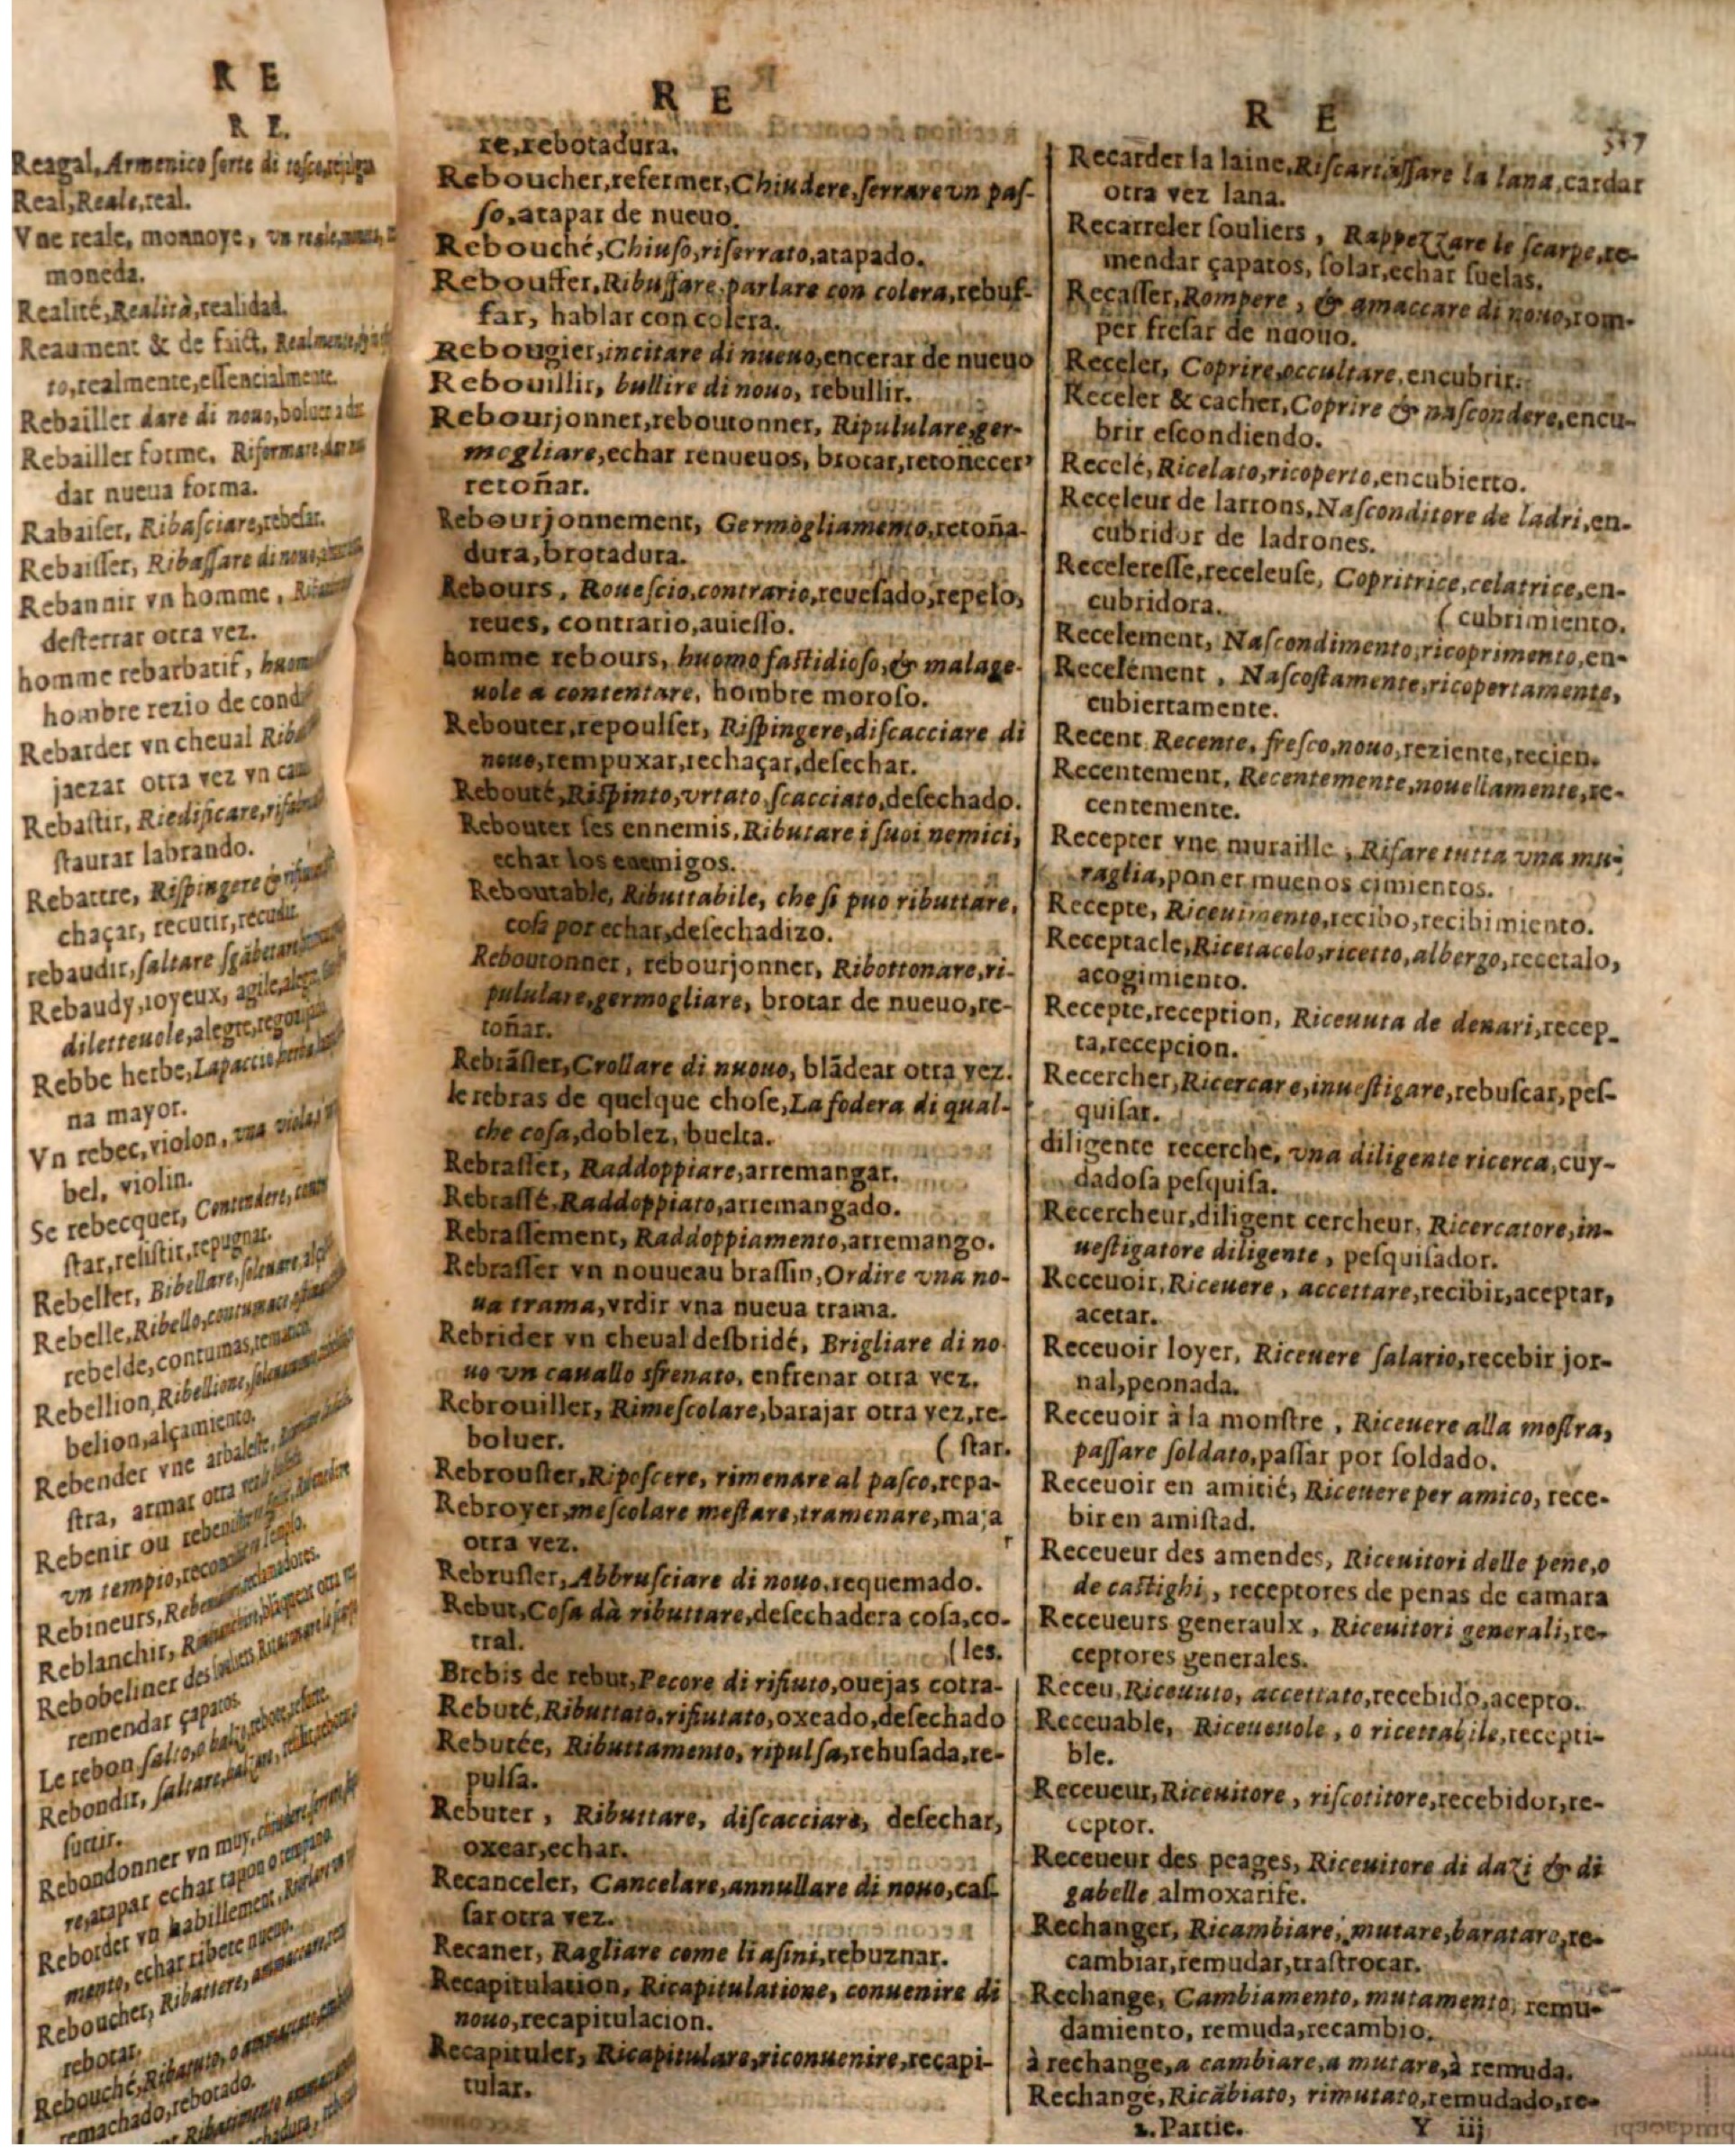 R E
R E.
Reagal, Armenico sorte di
Real, Reale, real.
Vne reale, monnoye, vn reale,
moneda.
Realité, Realità, realidad.
Reaument & de faict, Realmente,
to, realmente, essencialmente.
Rebailler dare di nouo, boluer a dar
Rebailler forme, Riformare, dar
dar nueua forma.
Rabaiser, Ribasciare, rebesar.
Rebaisser, Ribassare di nouo,
Rebannir vn homme,
desterrar otra vez.
homme rebarbatif, huomo
hombre rezio de cond
Rebarder vn cheual
jaezar otra vez vn
Rebastir, Riedificare,
staurar labrando.
Rebattre, Rispingere &
chaçar, recutir, recudir
rebaudir, saltare
Rebaudy, ioyeux, agile,
diletteuole, alegre,
Rebbe herbe, Lapaccio,
na mayor.
Vn rebec, violon, vna viola,
bel, violin.
Se rebecquer, Contendere,
star, resistir, repugnar.
Rebeller, Ribellare,
Rebelle, Ribello,
rebelde, contumas,
Rebellion, Ribellione,
belion, alçamiento.
Rebender vne arbaleste,
stra, armar otra vez
Rebenir ou
vn tempio,
Rebineurs,
Reblanchir,
Rebobeliner des souliers,
remendar çapatos.
Le rebon salto,
Rebondir, saltare,
surtir.
Rebondonner vn muy,
re, atapar echar tapon o
Reborder vn habillement,
mento, echar ribete nueuo.
Reboucher, Ribattere,
rebotar.
Rebouché, Ribattuto, o
remachado, rebotado.
R E
re, rebotadura.
Reboucher, refermer, Chiudere, serrare vn pas-
so, atapar de nueuo.
Rebouché, Chiuso, riserrato, atapado.
Rebouffer, Ribuffare, parlare con colera, rebuf-
far, hablar con colera.
Rebougier, incitare di nueuo, encerar de nueuo
Rebouillir, bullire di nouo, rebullir.
Rebourjonner, reboutonner, Ripululare, ger-
mogliare, echar renueuos, brotar, retoñecer,
retoñar.
Rebourjonnement, Germogliamento, retoña-
dura, brotadura.
Rebours, Rouescio, contrario, reuesado, repelo,
reues, contrario, auiesso.
homme rebours, huomo fastidioso, & malage-
uole a contentare, hombre moroso.
Rebouter, repoulser, Rispingere, discacciare di
nouo, rempuxar, rechaçar, desechar.
Rebouté, Rispinto, vrtato, scacciato, desechado.
Rebouter ses ennemis, Ributare i suoi nemici,
echar los enemigos.
Reboutable, Ributtabile, che si puo ributtare,
cosa por echar, desechadizo.
Reboutonner, rebourjonner, Ribottonare, ri-
pululare, germogliare, brotar de nueuo, re-
toñar.
Rebrāsler, Crollare di nuouo, blādear otra vez.
le rebras de quelque chose, La fodera di qual-
che cosa, doblez, buelta.
Rebrasser, Raddoppiare, arremangar.
Rebrassé, Raddoppiato, arremangado.
Rebrassement, Raddoppiamento, arremango.
Rebrasser vn nouueau brassin, Ordire vna no-
ua trama, vrdir vna nueua trama.
Rebrider vn cheual desbridé, Brigliare di no-
uo vn cauallo sfrenato, enfrenar otra vez.
Rebrouiller, Rimescolare, barajar otra vez, re-
boluer. ( star.
Rebrouster, Ripascere, rimenare al pasco, repa-
Rebroyer, mescolare mestare, tramenare, maja
otra vez. r
Rebrusler, Abbrusciare di nouo, requemado.
Rebut, Cosa dà ributtare, desechadera cosa, co-
tral. ( les.
Brebis de rebut, Pecore di rifiuto, ouejas cotra-
Rebuté, Ributtato, rifiutato, oxeado, desechado
Rebutée, Ributtamento, ripulsa, rehusada, re-
pulsa.
Rebuter, Ributtare, discacciare, desechar,
oxear, echar.
Recanceler, Cancelare, annullare di nouo, cas-
sar otra vez.
Recaner, Ragliare come li asini, rebuznar.
Recapitulation, Ricapitulatione, conuenire di
nouo, recapitulacion.
Recapituler, Ricapitulare, riconuenire, recapi-
tular.
R E
Recarder la laine, Riscartassare la lana, cardar
otra vez lana.
Recarreler souliers, Rappezzare le scarpe, re-
mendar çapatos, solar, echar suelas.
Recasser, Rompere, & amaccare di nouo, rom-
per fresar de nuouo.
Receler, Coprire, occultare, encubrir.
Receler & cacher, Coprire & nascondere, encu-
brir escondiendo.
Recelé, Ricelato, ricoperto, encubierto.
Receleur de larrons, Nasconditore de ladri, en-
cubridor de ladrones.
Receleresse, receleuse, Copritrice, celatrice, en-
cubridora. ( cubrimiento.
Recelement, Nascondimento, ricoprimento, en-
Recelément, Nascostamente, ricopertamente,
cubiertamente.
Recent, Recente, fresco, nouo, reziente, recien.
Recentement, Recentemente, nouellamente, re-
centemente.
Recepter vne muraille, Rifare tutta vna mu-
raglia, poner muenos cimientos.
Recepte, Riceuimento, recibo, recibimiento.
Receptacle, Ricetacolo, ricetto, albergo, recetalo,
acogimiento.
Recepte, reception, Riceuuta de denari, recep-
ta, recepcion.
Recercher, Ricercare, inuestigare, rebuscar, pes-
quisar.
diligente recerche, vna diligente ricerca, cuy-
dadosa pesquisa.
Recercheur, diligent cercheur, Ricercatore, in-
uestigatore diligente, pesquisador.
Receuoir, Riceuere, accettare, recibir, aceptar,
acetar.
Receuoir loyer, Riceuere salario, recebir jor-
nal, peonada.
Receuoir à la monstre, Riceuere alla mostra,
passare soldato, passar por soldado.
Receuoir en amitié, Riceuere per amico, rece-
bir en amistad.
Receueur des amendes, Riceuitori delle pene, o
de castighi, receptores de penas de camara
Receueurs generaulx, Riceuitori generali, re-
ceptores generales.
Receu, Riceuuto, accettato, recebido, acepto.
Receuable, Riceueuole, o ricettabile, recepti-
ble.
Receueur, Riceuitore, riscotitore, recebidor, re-
ceptor.
Receueur des peages, Riceuitore di dazi & di
gabelle almoxarife.
Rechanger, Ricambiare, mutare, baratare, re-
cambiar, remudar, trastrocar.
Rechange, Cambiamento, mutamento, remu-
damiento, remuda, recambio.
à rechange, a cambiare, a mutare, à remuda.
Rechangé, Ricābiato, rimutato, remudado, re-
2. Partie. Y iij